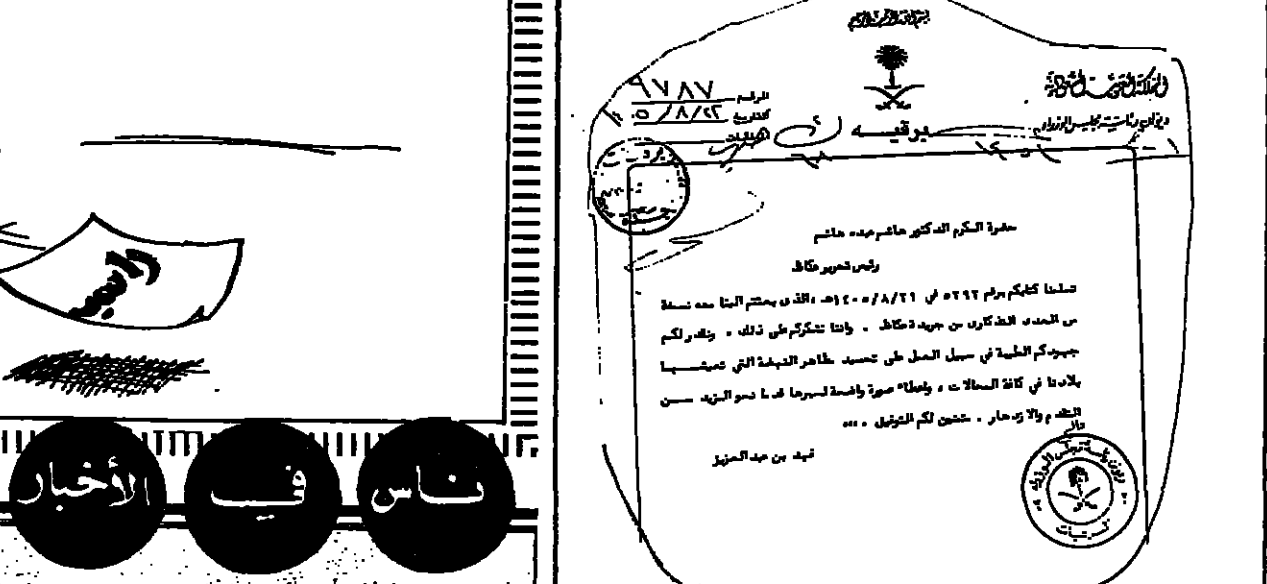 بسم الله الرحمن الرحيم
المملكة العربية السعودية
ديوان رئاسة مجلس الوزراء
الرقم ٩٧٨٧
التاريخ ٢٢/٨/٠٥
برقيه
حضرة المكرم الدكتور هاشم عبده هاشم
رئيس تحرير عكاظ
تسلمنا كتابكم برقم ٥٢٩٢ في ٢١/٨/١٤٠٥هـ ، الذي بعثتم الينا معه نسخة
من العدد التذكارى من جريدة عكاظ . واننا نشكركم على ذلك . ونقدر لكم
جهودكم الطيبة في سبيل العمل على تجسيد مظاهر النهضة التي تعيشها
بلادنا في كافة المجالات ، واعطاء صورة واضحة لسيرها قدما نحو المزيد من
التقدم والازدهار . متمنين لكم التوفيق . ،،،
فهد بن عبد العزيز
ديوان رئاسة مجلس الوزراء
برقيات
ناس في الأخبار